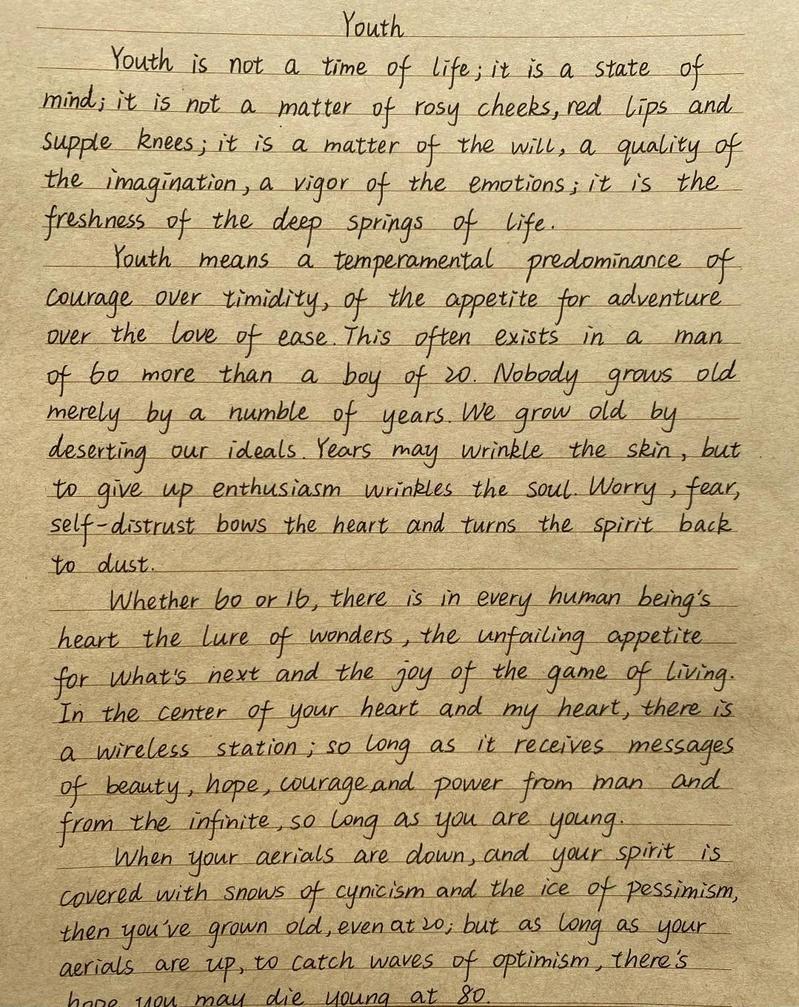 Youth
Youth is not a time of life; it is a state of
mind; it is not a matter of rosy cheeks, red lips and
supple knees; it is a matter of the will, a quality of
the imagination, a vigor of the emotions; it is the
freshness of the deep springs of life.
Youth means a temperamental predominance of
courage over timidity, of the appetite for adventure
over the love of ease. This often exists in a man
of 60 more than a boy of 20. Nobody grows old
merely by a numble of years. We grow old by
deserting our ideals. Years may wrinkle the skin, but
to give up enthusiasm wrinkles the soul. Worry, fear,
self-distrust bows the heart and turns the spirit back
to dust.
Whether 60 or 16, there is in every human being's
heart the lure of wonders, the unfailing appetite
for what's next and the joy of the game of living.
In the center of your heart and my heart, there is
a wireless station; so long as it receives messages
of beauty, hope, courage and power from man and
from the infinite, so long as you are young.
When your aerials are down, and your spirit is
covered with snows of cynicism and the ice of pessimism,
then you've grown old, even at 20; but as long as your
aerials are up, to catch waves of optimism, there's
hope you may die young at 80.